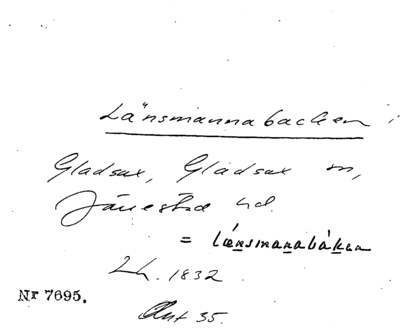 Länsmannabacken
Gladsax, Gladsax sn,
Järrestad hd.
= lǽnsmanabákan
Lh. 1832.
Nr 7695.
Ant 35.